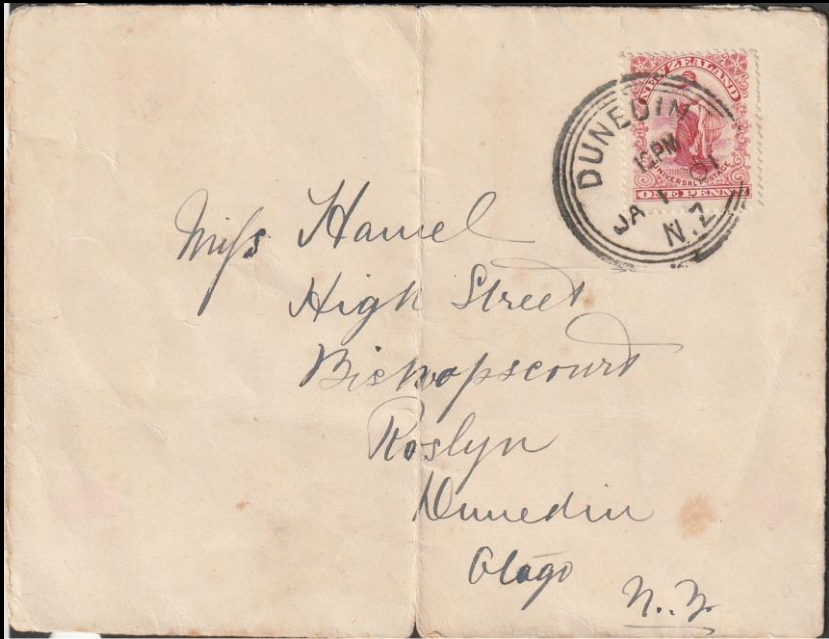 NEW ZEALAND
UNIVERSAL POSTAGE
ONE PENNY
DUNEDIN
12PM
JA 1 01
N.Z
Miss Hamel
High Street
Bishopscourt
Roslyn
Dunedin
Otago
N.Z.